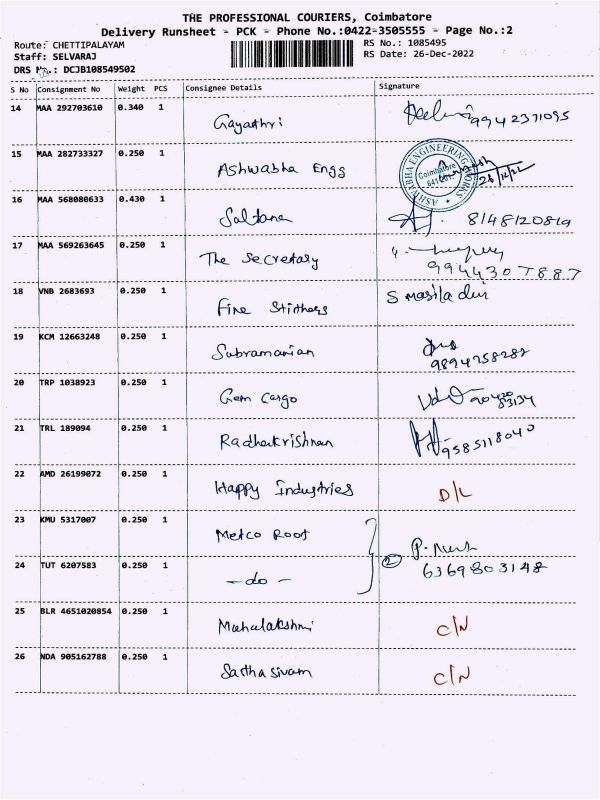 THE PROFESSIONAL COURIERS, Coimbatore
Delivery Runsheet - PCK - Phone No.:0422-3505555 - Page No.:2
Route: CHETTIPALAYAM
RS No.: 1085495
Staff: SELVARAJ
RS Date: 26-Dec-2022
DRS No.: DCJB108549502
S No Consignment No Weight PCS Consignee Details Signature
14 MAA 292703610 0.340 1 Gayathri 9942371095
15 MAA 282733327 0.250 1 Ashwabha Engg ASHWABHA ENGINEERING WORKS Coimbatore 26/12/22
16 MAA 568080633 0.430 1 Sultana 8148120819
17 MAA 569263645 0.250 1 The Secretary 9944307887
18 VNB 2683693 0.250 1 Fine Stithers S masila devi
19 KCM 12663248 0.250 1 Subramanian 9894758282
20 TRP 1038923 0.250 1 Gem Cargo 90420 83134
21 TRL 189094 0.250 1 Radhakrishnan 9585118040
22 AMD 26199072 0.250 1 Happy Industries D/L
23 KMU 5317007 0.250 1 Metco Roof
24 TUT 6207583 0.250 1 -do- 2 6369803148
25 BLR 4651020854 0.250 1 Mahalakshmi C/N
26 NDA 905162788 0.250 1 Sarthasivam C/N